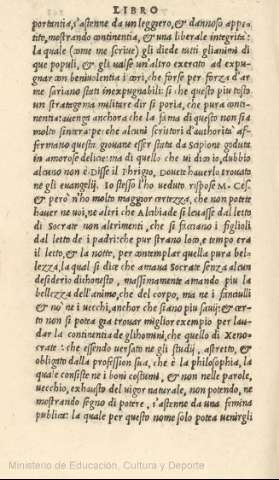 LIBRO
portantia, s'astenne da un leggero, & dannoso appe
tito, mostrando continentia, & una liberale integrità:
la quale (come me scriue) gli diede tutti gli animi di
que populi, & gli ualse un'altro exerato ad expu-
gnar con beniuolentia i cori, che forse per forza d'ar
me sariano stati inexpugnabili: si che questo piu tosto
un stratagema militare dir si poria, che pura conti-
nentia: auenga anchora che la fama di questo non sia
molto sincera: pe: che alcuni scrittori d'authorità af-
fermano questa giouane esser stata da Scipione goduta
in amorose delicie: ma di quello che ui dico io, dubbio
alcuno non è. Disse il Phrigio, Douete hauerlo trouato
ne gli euangelij. Io stesso l'ho ueduto rispose M. Ces.
& però n'ho molto maggior certezza, che non potete
hauer ne uoi, ne altri che Alcibiade si leuasse dal letto
di Socrate non altrimenti, che si facciano i figlioli
dal letto de i padri: che pur strano loco, e tempo era
il letto, & la notte, per contemplar quella pura bel-
lezza, la qual si dice che amaua Socrate senza alcun
desiderio dishonesto, massimamente amando piu la
bellezza dell'animo, che del corpo, ma ne i fanciulli
& nò ne i uecchi, anchor che siano piu sauij: & cer
to non si potea gia trouar miglior exempio per lau-
dar la continentia de gli homini, che quello di Xeno-
crate: che essendo uersato ne gli studij, astretto, &
obligato dalla profession sua, che è la philosophia, la
quale consiste ne i boni costumi, & non nelle parole,
uecchio, exhausto del uigor naturale, non potendo, ne
mostrando segno di potere, s'astenne da una femina
publica: la quale per questo nome solo potea uenirgli
Ministerio de Educación, Cultura y Deporte